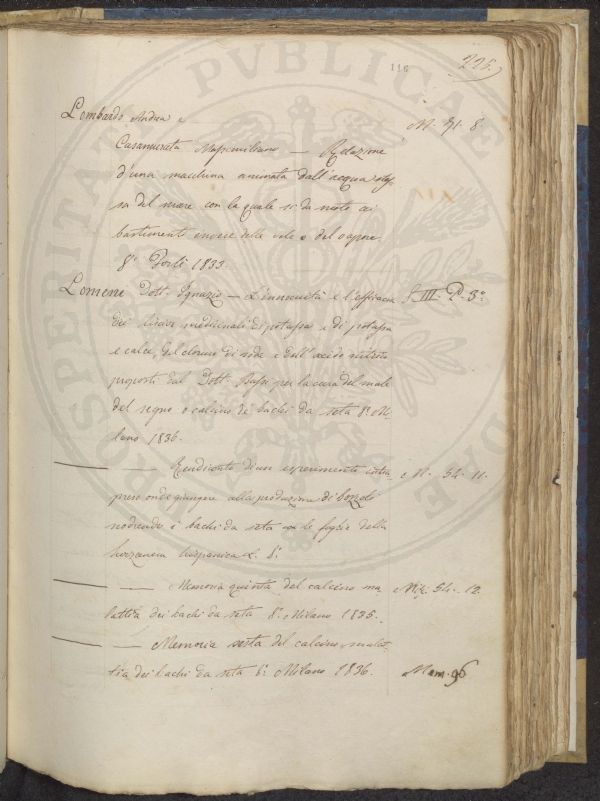 116
225.
Lombardo Andrea e
Casamurata Massimiliano — Relazione M. 71. 8.
d'una macchina animata dall'acqua stes
sa del mare con la quale si da moto ai
bastimenti invece delle vele e del vapore.
8° Forlì 1833.
Lomeni Dott. Ignazio — L'innocuità e l'efficacia S. III. P. 3°
dei lisciv medicinali di potassa, e di potassa
e calce, del cloruro di soda e dell'acido nitroso
proposti dal Dott. Bassi per la cura del male
del segno o calcino di bachi da seta 8° Mi-
lano 1836.
— — Rendiconto d'un esperimento intra- M. 54. 11.
preso onde giungere alla produzione di bozzoli
nodrendo i bachi da seta con le foglie della
hispanica L. 8°
— — Memoria quinta del calcino ma- 54. 12.
lattia dei bachi da seta 8° Milano 1835.
— — Memoria sesta del calcino, malat-
tia dei bachi da seta 8° Milano 1836. Mem. 96
PVBLICAE
PROSPERITATI